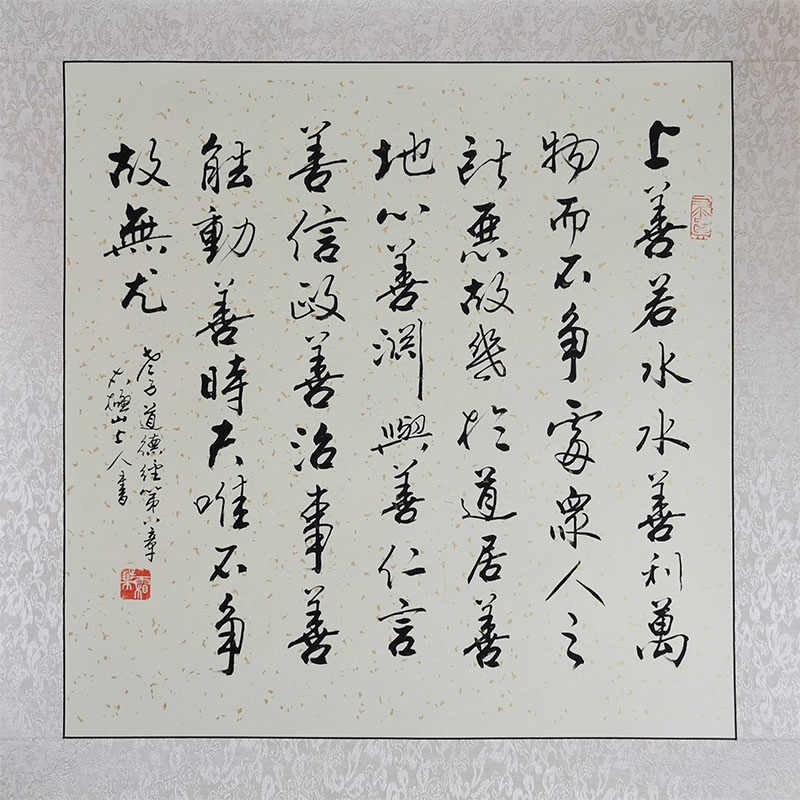 上善若水水善利萬
物而不争處衆人之
所惡故幾於道居善
地心善淵與善仁言
善信政善治事善
能動善時夫唯不争
故無尤
老子道德經第八章
山上人書